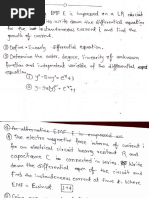 EMF E is impressed on a LR circuit
write down the differential equation
for the instantaneous current i and find the
growth of current.
② Define - Linearly differential equation.
③ Determine the order, degree, linearity of unknown
function and independent variables of the differential
equation
① y''-5xy'=eˣ+3
② y-3x(y)²=eˣ+3
④ An alternating EMF E is impressed on
④ The electric motive force interms of current i
for an electrical circuit having resistance R and
capacitance C connected in series. Write
down the differential eqn of the circuit and
find instantaneous current at time t. where
EMF = Esinwt.